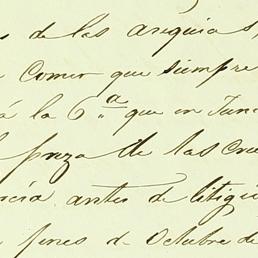 s de las arequias,
Comer que siempre
á la 6.ª que en Jun
preza de las Cru
ncia antes de litigi
fines d. Octubre de